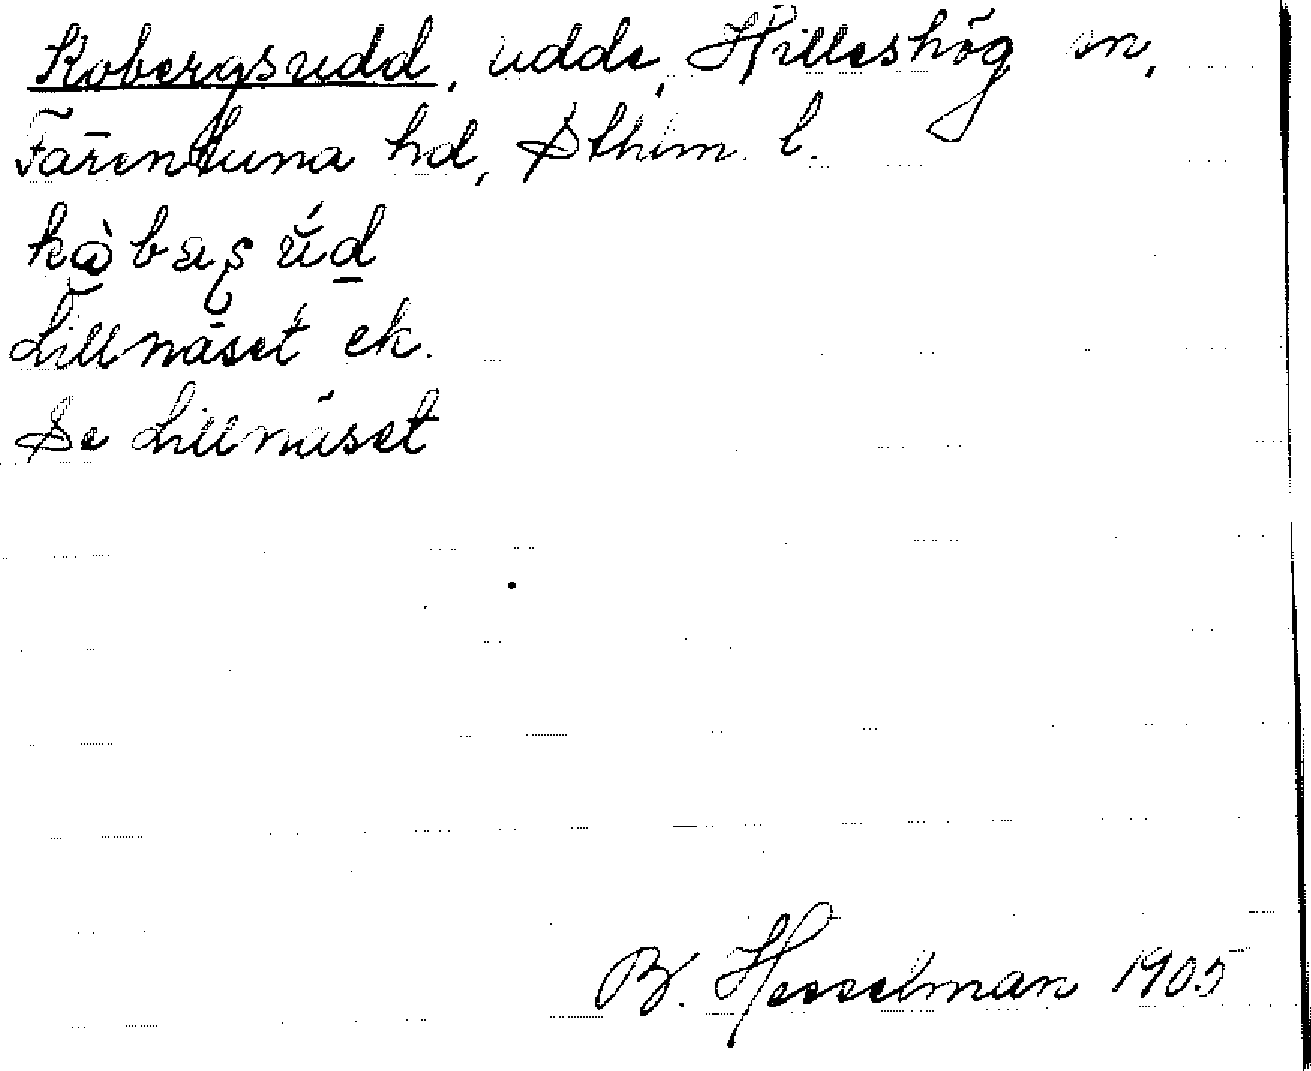 Kobergsudd, udde, Hilleshög sn,
Färentuna hd, Sthlm l.
Lillnäset ek.
Se Lillnäset
B. Hesselman 1905